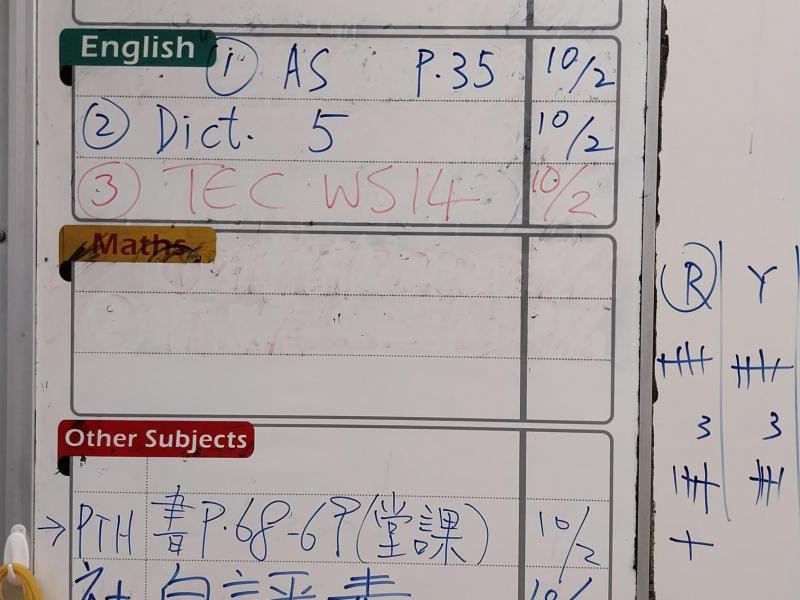 English
① AS P.35 10/2
② Dict. 5 10/2
③ TEC WS14 10/2
Maths
Other Subjects
→ PTH 書P.68-69(堂課) 10/2
R Y
3 3
+